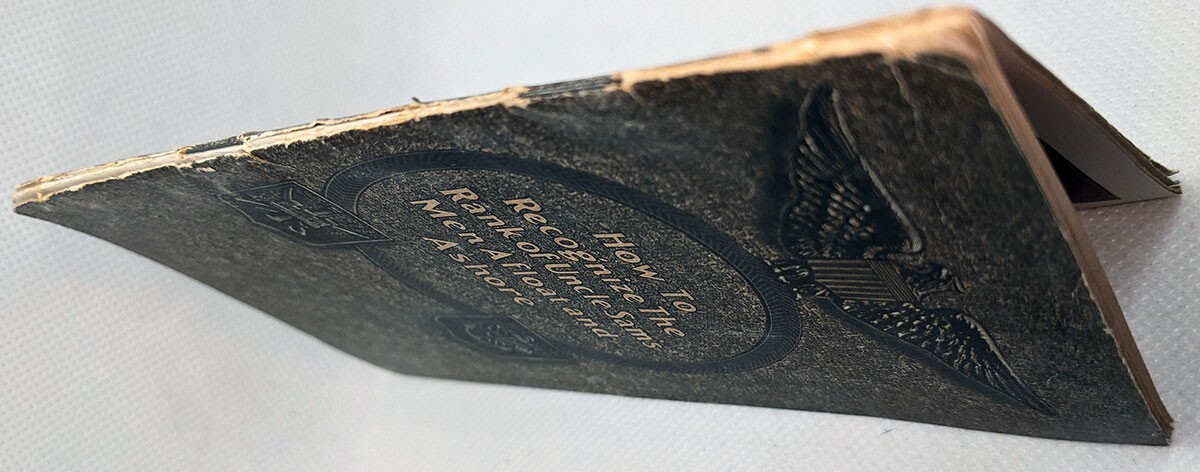 How To
Recognize The
Rank of Uncle Sams
Men Afloat and
Ashore